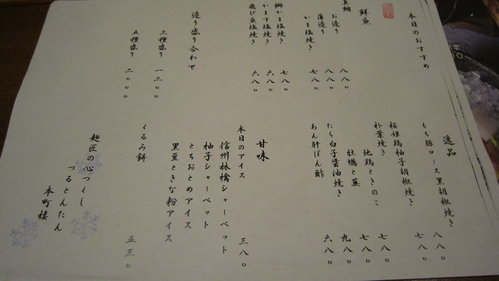 本日のおすすめ
鮮魚
お造り 八八〇
薄造り 八八〇
かま塩焼き 七八〇
鰤かま塩焼き 七八〇
かます塩焼き 六八〇
飛び魚塩焼き 六八〇
造り盛り合わせ
三種盛り 一三〇〇
五種盛り 二〇〇〇
逸品
もち豚ロース黒胡椒焼き 八八〇
桜姫鶏柚子胡椒焼き 七八〇
朴葉焼き
地鶏ときのこ 七八〇
牡蠣と葱 九八〇
たら白子醤油焼き 七八〇
あん肝ぽん酢 六八〇
甘味
本日のアイス 三八〇
信州林檎シャーベット
柚子シャーベット
とちおとめアイス
黒豆ときな粉アイス
くるみ餅 五三〇
麺匠の心つくし
つるとんたん
本町楼